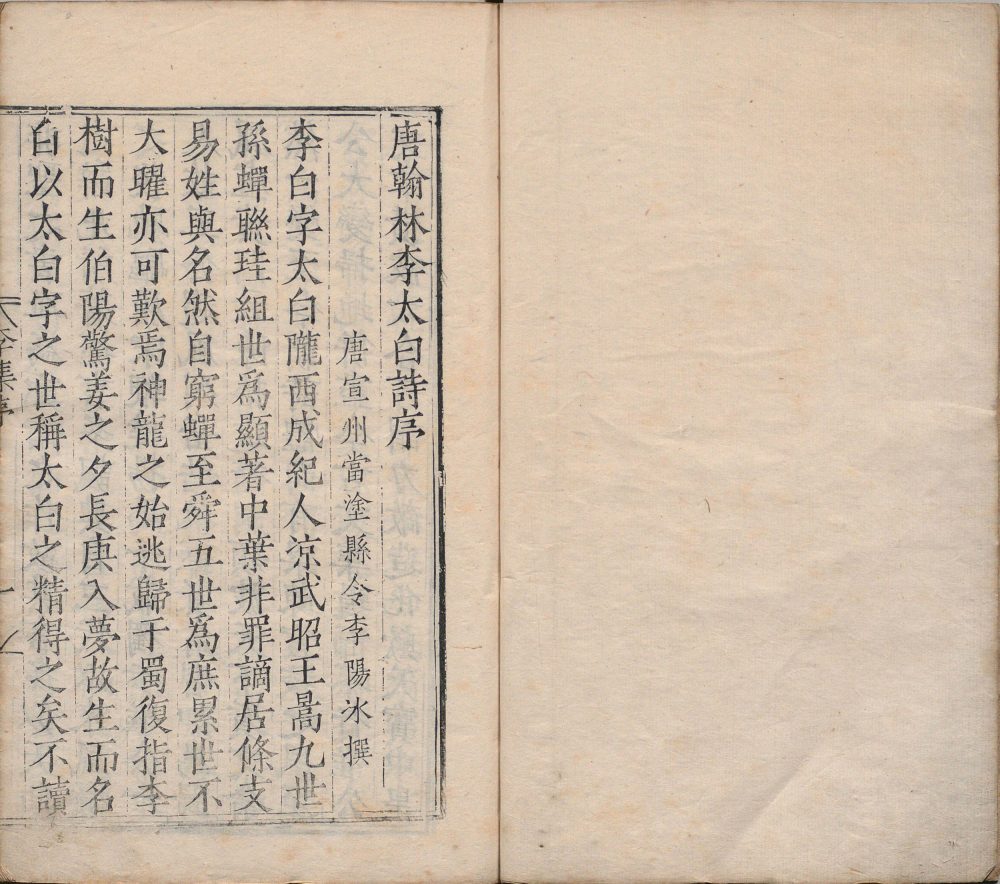 唐翰林李太白詩序
唐宣州當塗縣令李陽冰撰
李白字太白隴西成紀人涼武昭王暠九世
孫蟬聯珪組世爲顯著中葉非罪謫居條支
易姓與名然自窮蟬至舜五世爲庶累世不
大曜亦可歎焉神龍之始逃歸于蜀復指李
樹而生伯陽驚姜之夕長庚入夢故生而名
白以太白字之世稱太白之精得之矣不讀
李集序
一